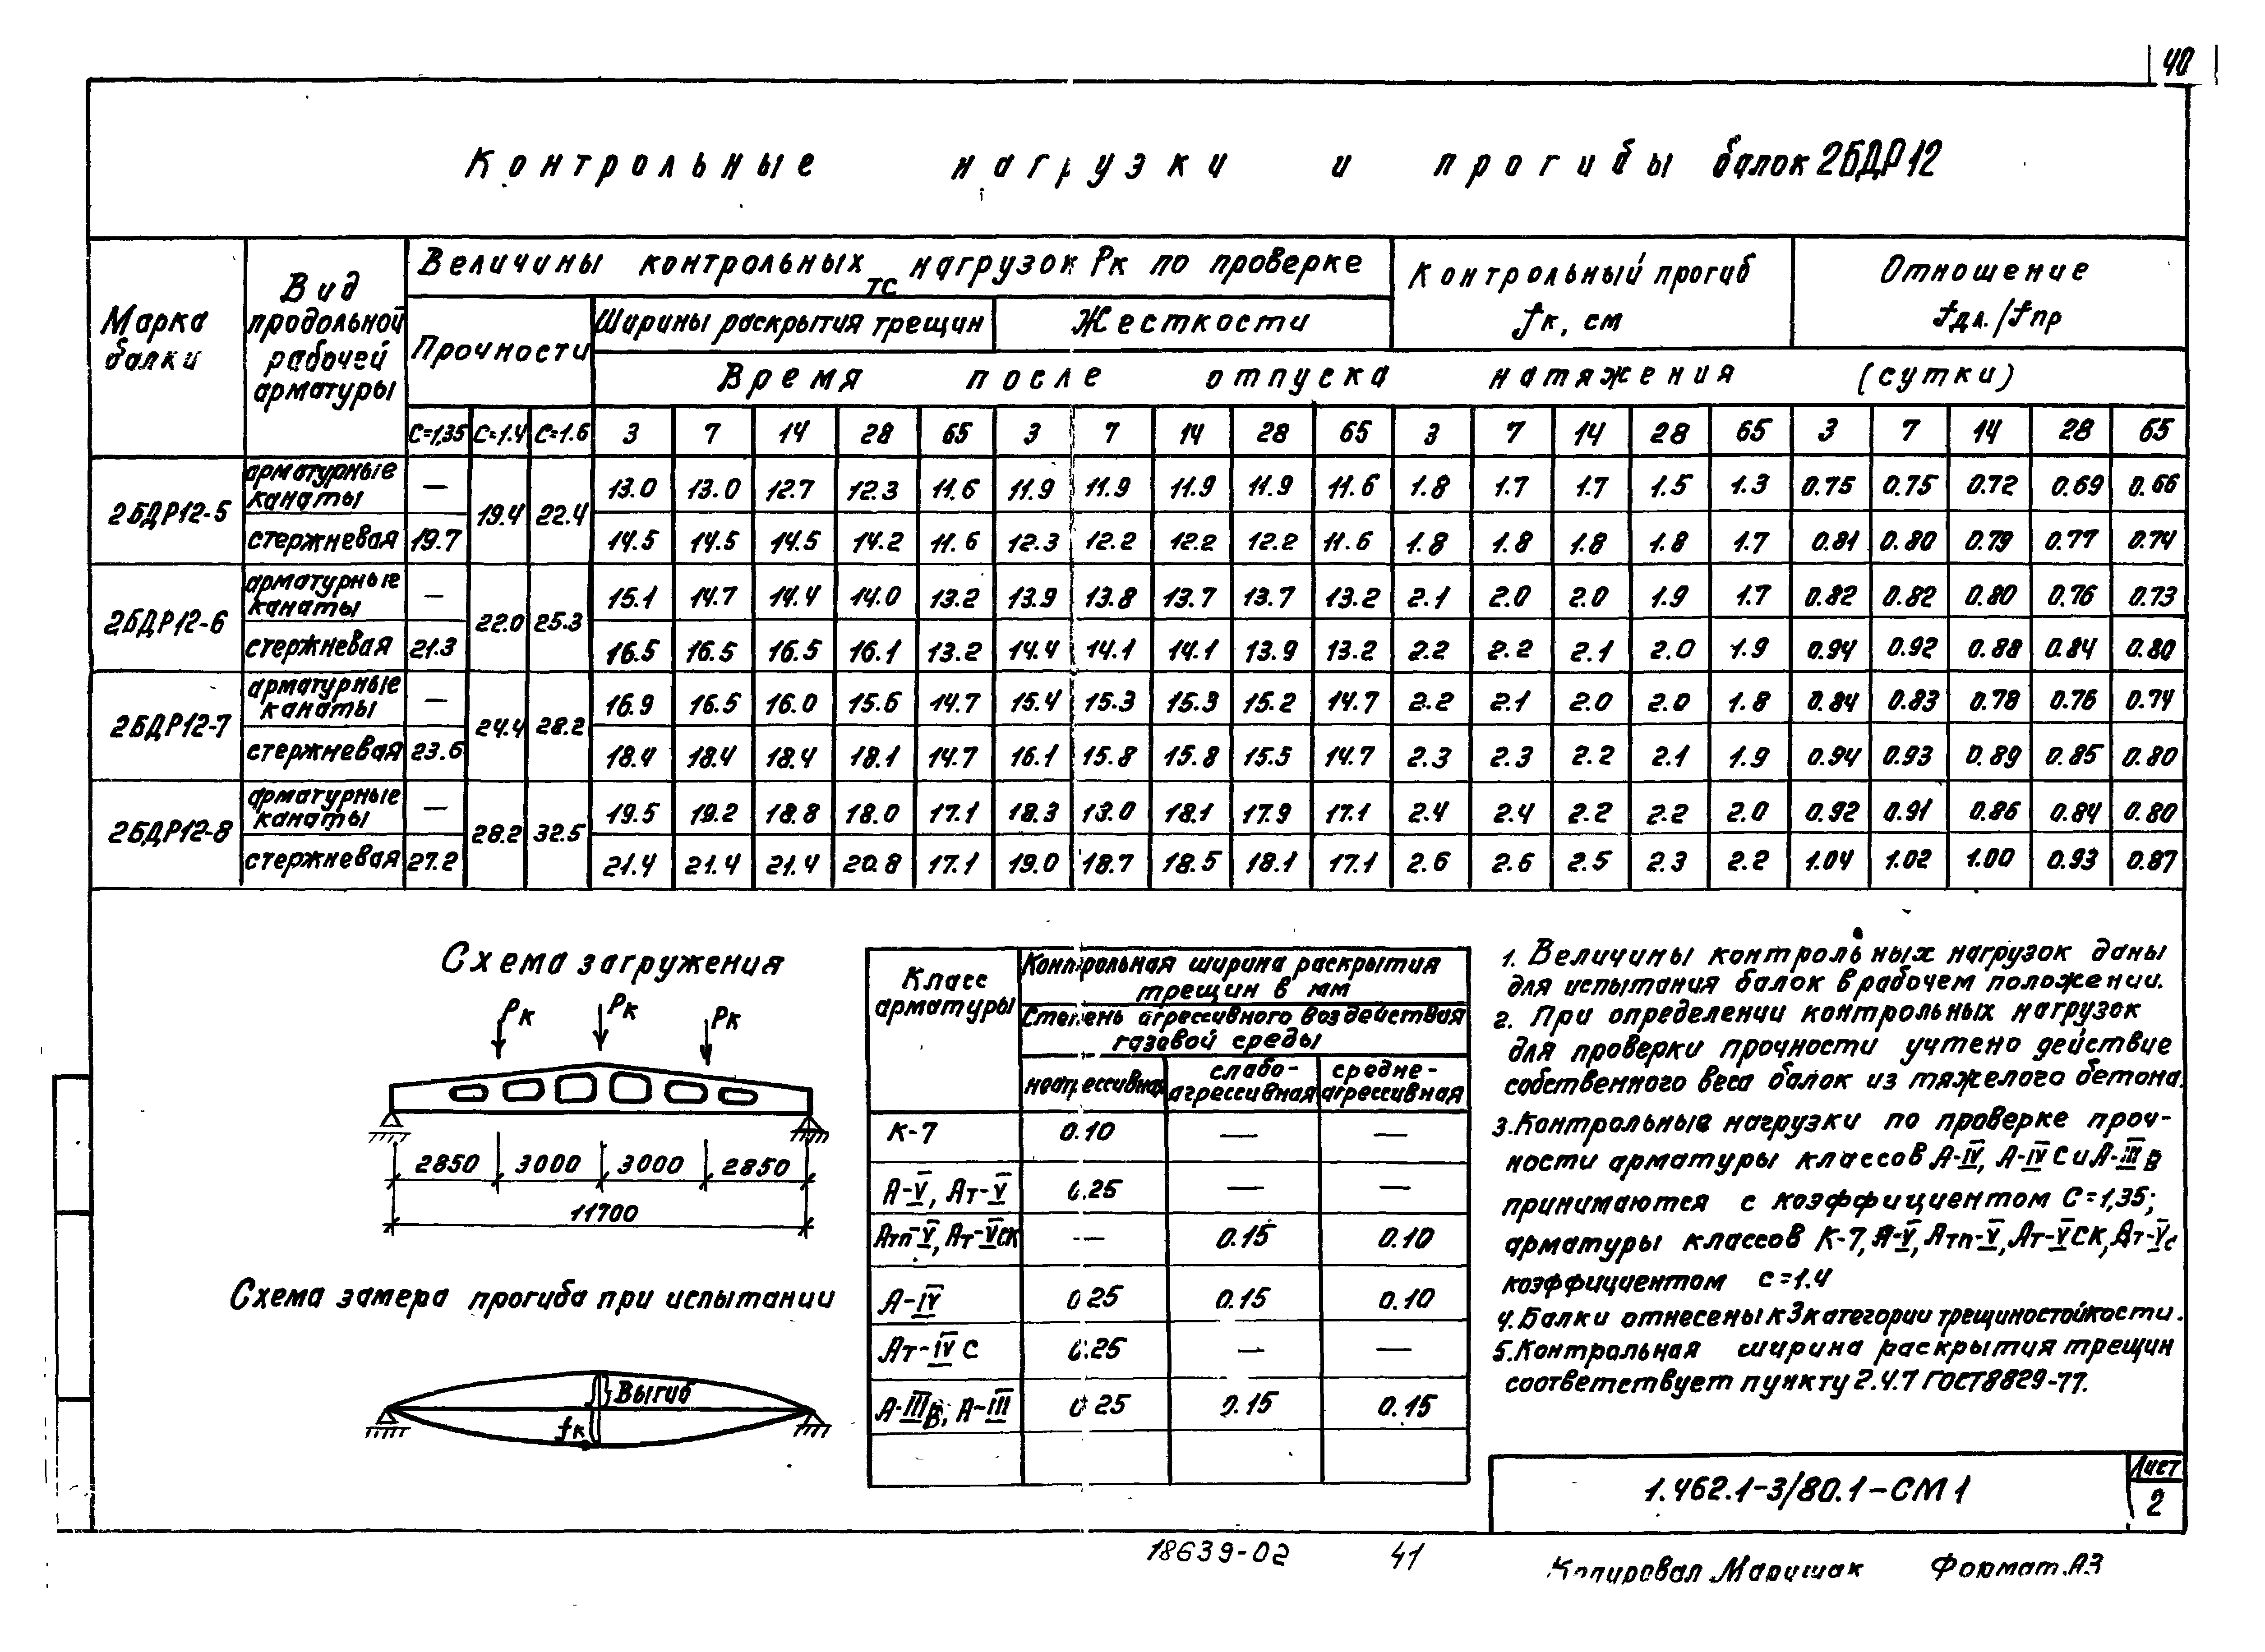 40
Контрольные нагрузки и прогибы балок 2БДР12
Марка балки
Вид продольной рабочей арматуры
Величины контрольных нагрузок Рк по проверке
тс
Контрольный прогиб fк, см
Отношение fдл./fпр
Прочности
Ширины раскрытия трещин
Жесткости
Время после отпуска натяжения (сутки)
С=1,35 С=1.4 С=1.6 3 7 14 28 65 3 7 14 28 65 3 7 14 28 65 3 7 14 28 65
2БДР12-5 арматурные канаты — 19.4 22.4 13.0 13.0 12.7 12.3 11.6 11.9 11.9 11.9 11.9 11.6 1.8 1.7 1.7 1.5 1.3 0.75 0.75 0.72 0.69 0.66
стержневая 19.7 14.5 14.5 14.5 14.2 11.6 12.3 12.2 12.2 12.2 11.6 1.8 1.8 1.8 1.8 1.7 0.81 0.80 0.79 0.77 0.74
2БДР12-6 арматурные канаты — 22.0 25.3 15.1 14.7 14.4 14.0 13.2 13.9 13.8 13.7 13.7 13.2 2.1 2.0 2.0 1.9 1.7 0.82 0.82 0.80 0.76 0.73
стержневая 21.3 16.5 16.5 16.5 16.1 13.2 14.4 14.1 14.1 13.9 13.2 2.2 2.2 2.1 2.0 1.9 0.94 0.92 0.88 0.84 0.80
2БДР12-7 арматурные канаты — 24.4 28.2 16.9 16.5 16.0 15.6 14.7 15.4 15.3 15.3 15.2 14.7 2.2 2.1 2.0 2.0 1.8 0.84 0.83 0.78 0.76 0.74
стержневая 23.6 18.4 18.4 18.4 18.1 14.7 16.1 15.8 15.8 15.5 14.7 2.3 2.3 2.2 2.1 1.9 0.94 0.93 0.89 0.85 0.80
2БДР12-8 арматурные канаты — 28.2 32.5 19.5 19.2 18.8 18.0 17.1 18.3 13.0 18.1 17.9 17.1 2.4 2.4 2.2 2.2 2.0 0.92 0.91 0.86 0.84 0.80
стержневая 27.2 21.4 21.4 21.4 20.8 17.1 19.0 18.7 18.5 18.1 17.1 2.6 2.6 2.5 2.3 2.2 1.04 1.02 1.00 0.93 0.87
Схема загружения
Рк Рк Рк
2850 3000 3000 2850
11700
Схема замера прогиба при испытании
Выгиб
fк
Класс арматуры
Контрольная ширина раскрытия
трещин в мм
Степень агрессивного воздействия
газовой среды
неагрессивная слабо-агрессивная средне-агрессивная
К-7 0.10 — —
А-V, Ат-V 0.25 — —
Атп-V, Ат-VСК — 0.15 0.10
А-IV 0.25 0.15 0.10
Ат-IV С 0.25 — —
А-IIIв, А-III 0.25 0.15 0.15
1. Величины контрольных нагрузок даны
для испытания балок в рабочем положении.
2. При определении контрольных нагрузок
для проверки прочности учтено действие
собственного веса балок из тяжелого бетона.
3. Контрольные нагрузки по проверке проч-
ности арматуры классов А-IV, А-IV С и А-IIIв
принимаются с коэффициентом С=1,35;
арматуры классов К-7, А-V, Атп-V, Ат-VСК, Ат-Vс
коэффициентом с=1.4
4. Балки отнесены к 3 категории трещиностойкости.
5. Контрольная ширина раскрытия трещин
соответствует пункту 2.4.7 ГОСТ 8829-77.
1.462.1-3/80.1-СМ1
Лист
2
18639-02 41
Копировал Маришак Формат А3